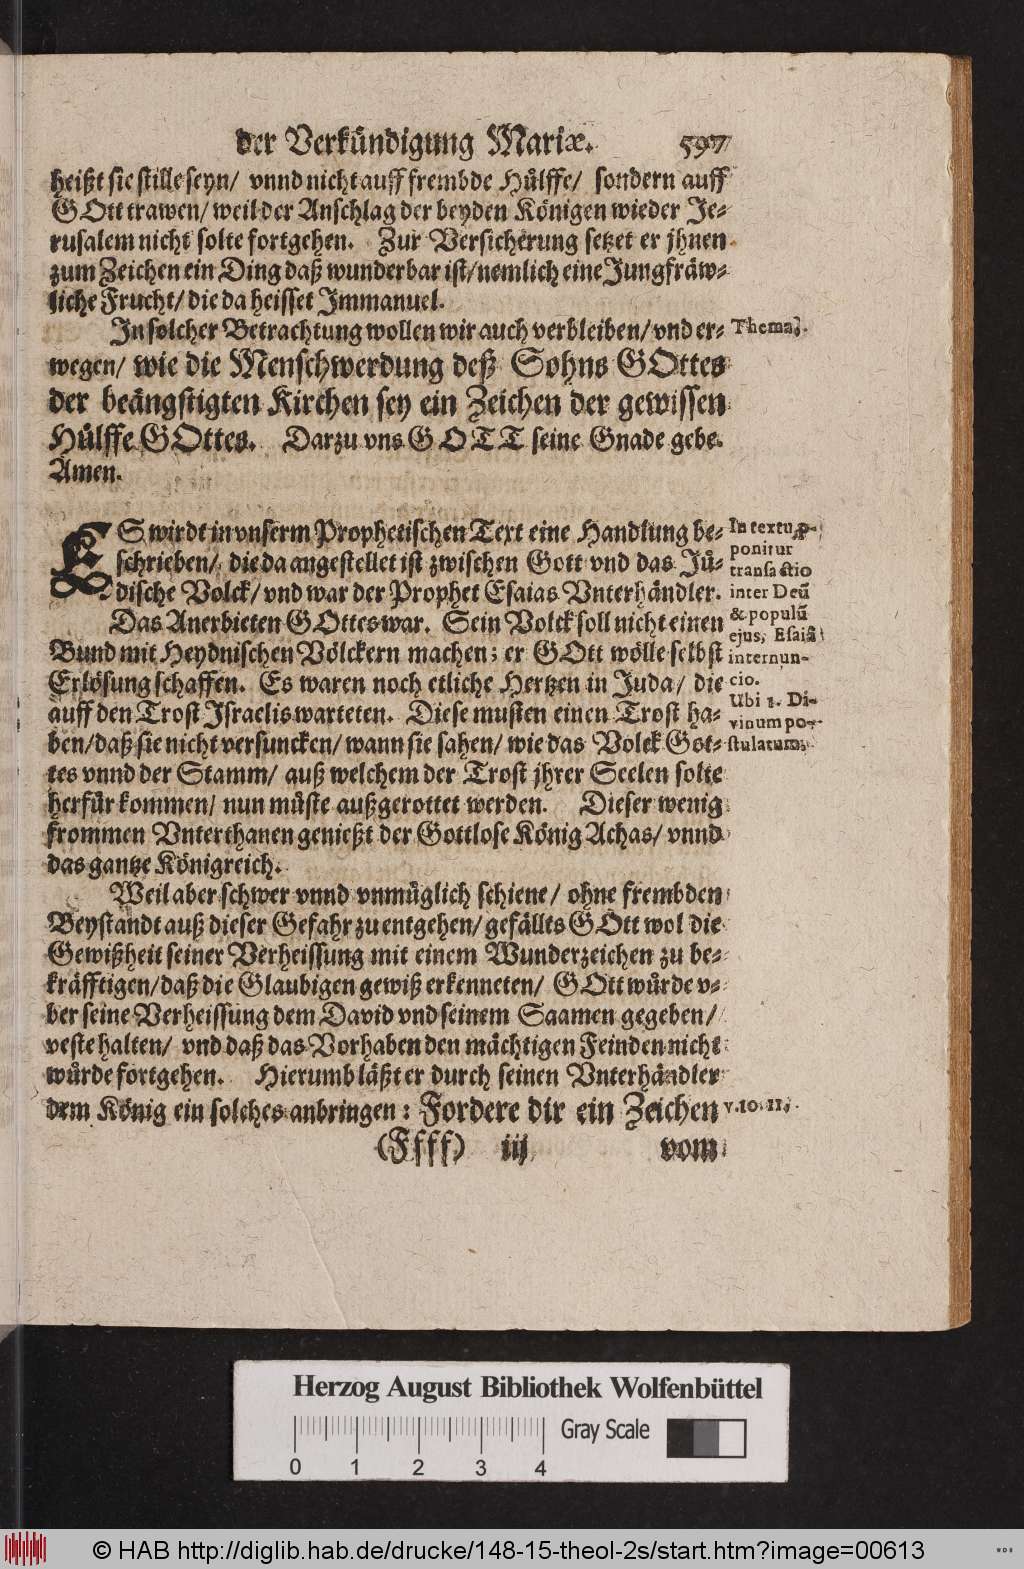 der Verkündigung Mariæ. 597
heißt sie stille seyn/ vnnd nicht auff frembde Hülffe/ sondern auff
GOtt trawen/ weil der Anschlag der beyden Königen wieder Je-
rusalem nicht solte fortgehen. Zur Versicherung setzet er jhnen
zum Zeichen ein Ding daß wunderbar ist/ nemlich eine Jungfräw-
liche Frucht/ die da heisset Jmmanuel.
Jn solcher Betrachtung wollen wir auch verbleiben/ vnd er-
wegen/ wie die Menschwerdung deß Sohns GOttes
der beängstigten Kirchen sey ein Zeichen der gewissen
Hülffe GOttes. Darzu vns GOTT seine Gnade gebe.
Amen.
Thema.
ES wirdt in vnserm Prophetischen Text eine Handlung be-
schrieben/ die da angestellet ist zwischen Gott vnd das Jü-
dische Volck/ vnd war der Prophet Esaias Vnterhändler.
Das Anerbieten GOttes war. Sein Volck soll nicht einen
Bund mit Heydnischen Völckern machen; er GOtt wölle selbst
Erlösung schaffen. Es waren noch etliche Hertzen in Juda/ die
auff den Trost Jsraelis warteten. Diese musten einen Trost ha-
ben/ daß sie nicht versuncken/ wann sie sahen/ wie das Volck Got-
tes vnnd der Stamm/ auß welchem der Trost jhrer Seelen solte
herfür kommen/ nun müste außgerottet werden. Dieser wenig
frommen Vnterthanen genießt der Gottlose König Achas/ vnnd
das gantze Königreich.
In textu ꝓ-
ponitur
transactio
inter Deũ
& populũ
ejus, Esaiâ
internun-
cio.
Ubi 1. Di-
vinum po-
stulatum,
Weil aber schwer vnnd vnmüglich schiene/ ohne frembden
Beystandt auß dieser Gefahr zu entgehen/ gefällts GOtt wol die
Gewißheit seiner Verheissung mit einem Wunderzeichen zu be-
kräfftigen/ daß die Glaubigen gewiß erkenneten/ GOtt würde v-
ber seine Verheissung dem David vnd seinem Saamen gegeben/
veste halten/ vnd daß das Vorhaben den mächtigen Feinden nicht
würde fortgehen. Hierumb läßt er durch seinen Vnterhändler
dem König ein solches anbringen: Fordere dir ein Zeichen
v. 10. 11.
(Ffff) iij vom
Herzog August Bibliothek Wolfenbüttel
Gray Scale
0 1 2 3 4
© HAB http://diglib.hab.de/drucke/148-15-theol-2s/start.htm?image=00613